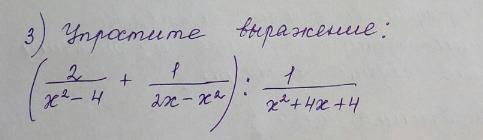 3) Упростите выражение:
(2/(x²-4) + 1/(2x-x²)) : 1/(x²+4x+4)